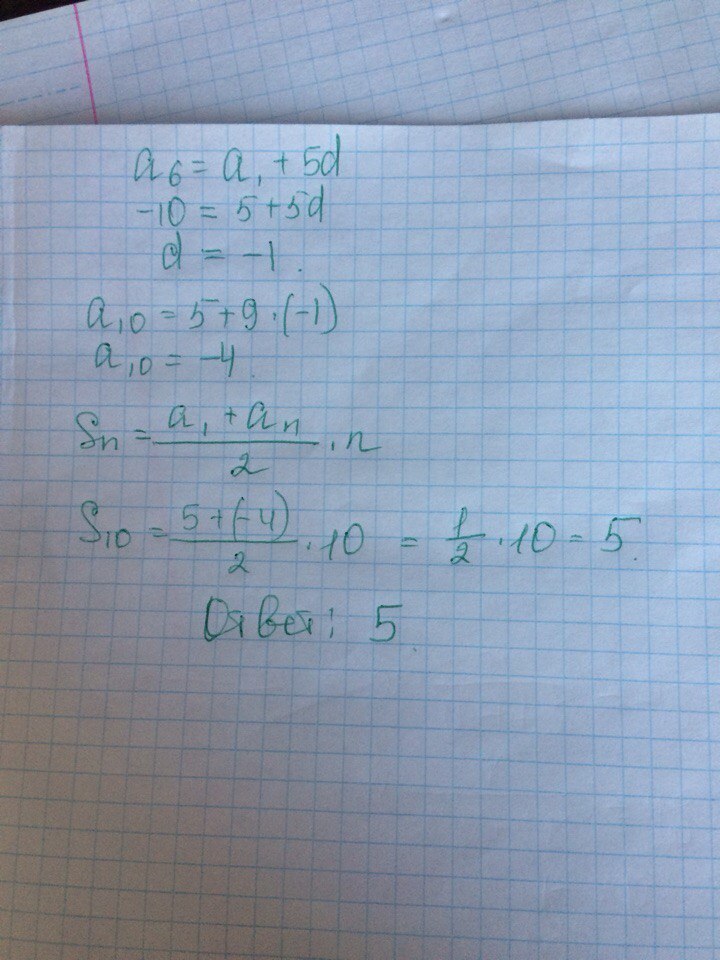 a₆ = a₁ + 5d
-10 = 5 + 5d
d = -1.
a₁₀ = 5 + 9 · (-1)
a₁₀ = -4.
Sn = (a₁ + an)/2 · n
S₁₀ = (5 + (-4))/2 · 10 = 1/2 · 10 = 5.
Ответ: 5.